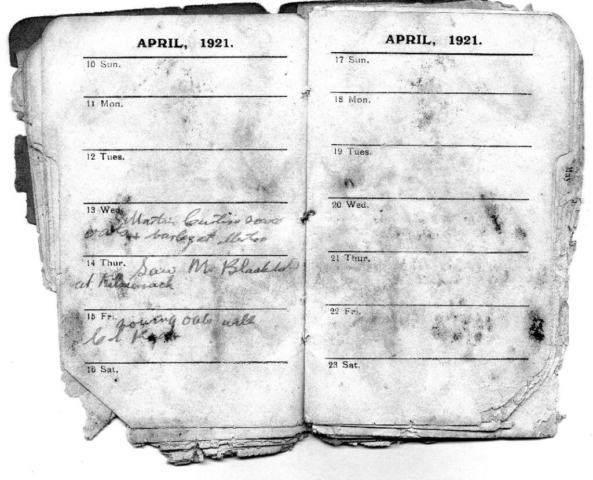 APRIL, 1921.
10 Sun.
11 Mon.
12 Tues.
13 Wed.
Martin Curtiss
oats + barley at
14 Thur.
Saw Mr
at
15 Fri.
sowing oats
16 Sat.
APRIL, 1921.
17 Sun.
18 Mon.
19 Tues.
20 Wed.
21 Thur.
22 Fri.
23 Sat.
May